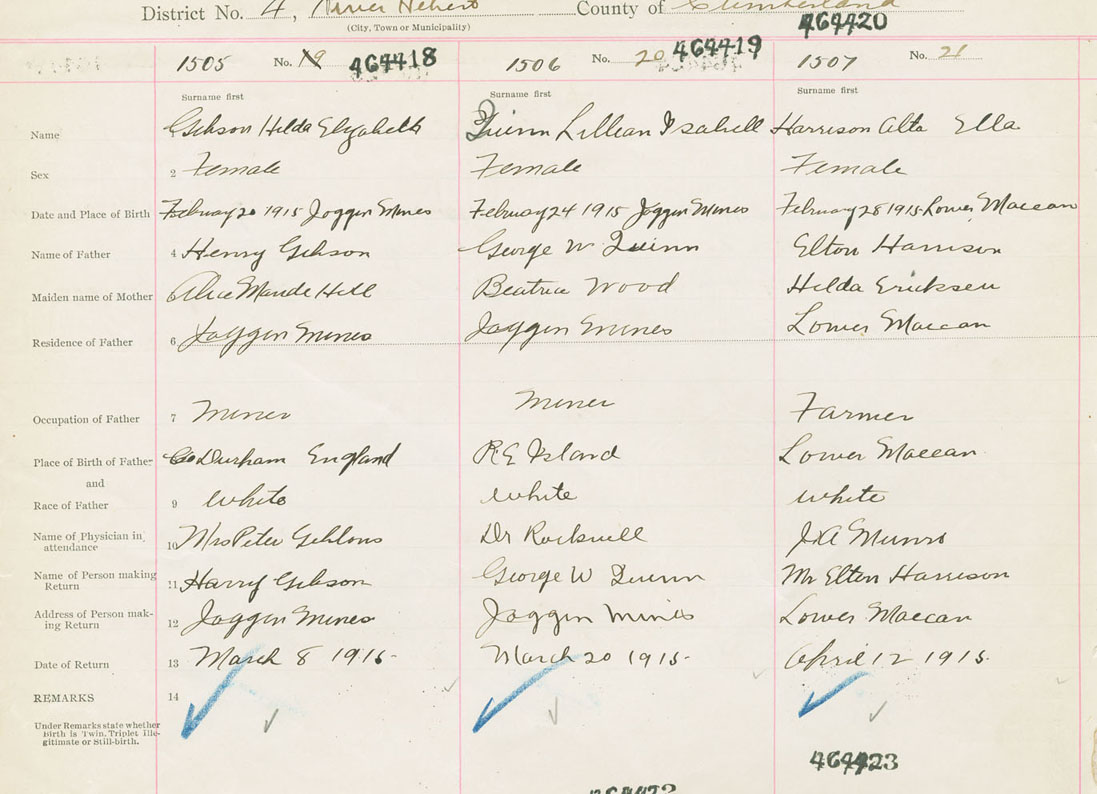 District No. 4, River Hebert County of Cumberland
(City, Town or Municipality)
464420
1505 No. 19 464418 1506 No. 20 464419 1507 No. 21
Surname first Surname first Surname first
Name 1 Gibson Hilda Elizabeth Quinn Lillian Isabell Harrison Alta Ella
Sex 2 Female Female Female
Date and Place of Birth February 20 1915 Joggin Mines February 24 1915 Joggin Mines February 28 1915 Lower Maccan
Name of Father 4 Henry Gibson George W Quinn Elton Harrison
Maiden name of Mother Alice Maude Hill Beatrice Wood Hilda Ericksen
Residence of Father 6 Joggin Mines Joggin Mines Lower Maccan
Occupation of Father 7 Miner Miner Farmer
Place of Birth of Father Co Durham England P.E Island Lower Maccan
and
Race of Father 9 White White White
Name of Physician in attendance 10 Mrs Peter Dr Rockwell J.A Munro
Name of Person making Return 11 Harry Gibson George W Quinn Mr Elton Harrison
Address of Person making Return 12 Joggin Mines Joggin Mines Lower Maccan
Date of Return 13 March 8 1915 March 20 1915 April 12 1915
REMARKS 14
Under Remarks state whether
Birth is Twin, Triplet Ille-
gitimate or Still-birth.
464423